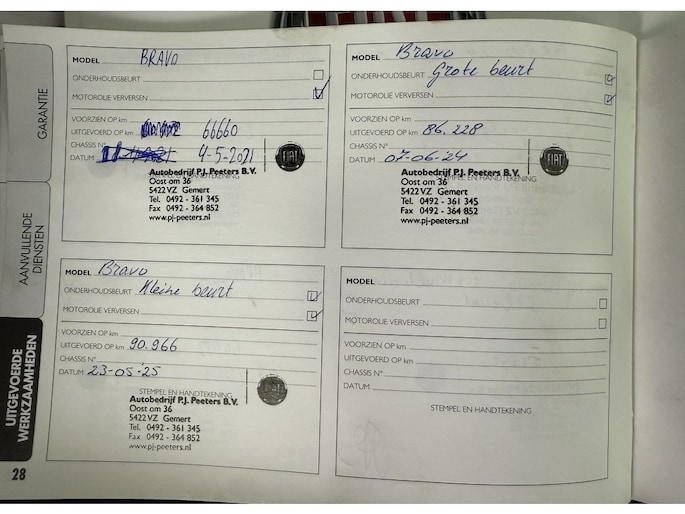 GARANTIE
AANVULLENDE
DIENSTEN
UITGEVOERDE
WERKZAAMHEDEN
28
MODEL BRAVO
ONDERHOUDSBEURT
MOTOROLIE VERVERSEN
VOORZIEN OP km
UITGEVOERD OP km 66660
CHASSIS N°
DATUM 4-5-2021
FIAT
Autobedrijf P.J. Peeters B.V.
STEMPEL EN HANDTEKENING
Oost om 36
5422 VZ Gemert
Tel. 0492 - 361 345
Fax 0492 - 364 852
www.pj-peeters.nl
MODEL Bravo
ONDERHOUDSBEURT Grote beurt
MOTOROLIE VERVERSEN
VOORZIEN OP km
UITGEVOERD OP km 86.228
CHASSIS N°
DATUM 07-06-24
FIAT
Autobedrijf P.J. Peeters B.V.
STEMPEL EN HANDTEKENING
Oost om 36
5422 VZ Gemert
Tel. 0492 - 361 345
Fax 0492 - 364 852
www.pj-peeters.nl
MODEL Bravo
ONDERHOUDSBEURT Kleine beurt
MOTOROLIE VERVERSEN
VOORZIEN OP km
UITGEVOERD OP km 90.966
CHASSIS N°
DATUM 23-05-'25
STEMPEL EN HANDTEKENING
Autobedrijf P.J. Peeters B.V.
Oost om 36
5422 VZ Gemert
Tel. 0492 - 361 345
Fax 0492 - 364 852
www.pj-peeters.nl
MODEL
ONDERHOUDSBEURT
MOTOROLIE VERVERSEN
VOORZIEN OP km
UITGEVOERD OP km
CHASSIS N°
DATUM
STEMPEL EN HANDTEKENING